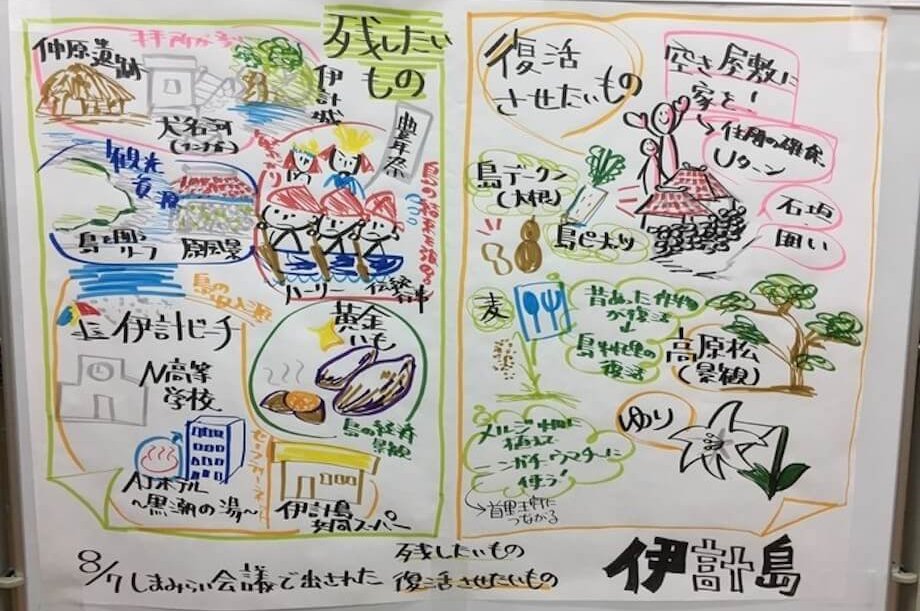 残したい
もの
仲原遺跡
拝所が多い
伊計城
犬名河
(インナガー)
豊年祭
観光
資源
島を囲う
リーフ
原風景
ハーリー
伝統
行事
島の結束を強める
伊計ビーチ
島の収入源
N高等
学校
黄金
いも
島の経済
景観
AJホテル
～黒潮の湯～
セーフティーネット
伊計島
共同スーパー
復活
させたいもの
空き屋敷に
家を!
↳住居の確保
Uターン
石垣
囲い
島デークン
(大根)
島ピーナッツ
麦
昔あった作物
が復活
↓
島料理の
復活
高原松
(景観)
ゆり
植えて
ニンガチウマチーに
使う!
↳首里王府に
つながる
8/7 しまみらい会議で出された
残したいもの
復活させたいもの
伊計島